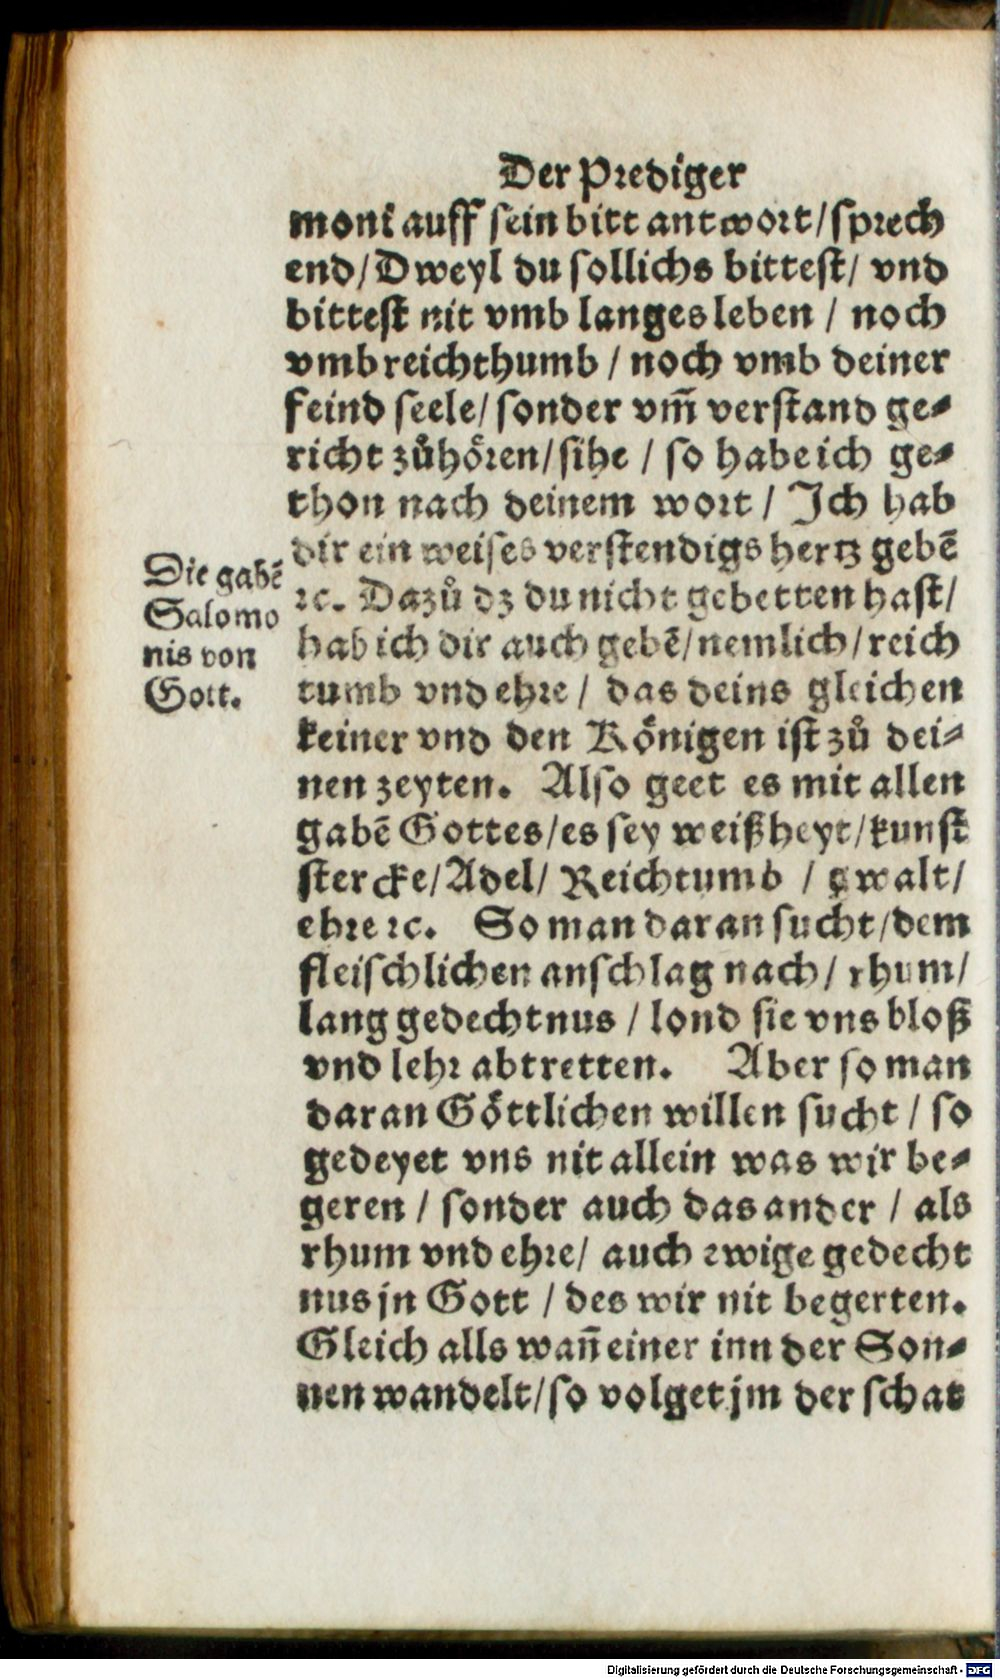 Der Prediger
moni auff sein bitt antwort/sprech
end/Dweyl du sollichs bittest/ vnd
bittest nit vmb langes leben / noch
vmb reichthumb / noch vmb deiner
feind seele/ sonder vm̃ verstand ge⸗
richt zůhören/sihe / so habe ich ge⸗
thon nach deinem wort / Ich hab
dir ein weises verstendigs hertz gebẽ
ꝛc. Dazů dz du nicht gebetten hast/
hab ich dir auch gebẽ/nemlich/reich
tumb vnd ehre / das deins gleichen
keiner vnd den Königen ist zů dei⸗
nen zeyten. Also geet es mit allen
gabẽ Gottes/es sey weißheyt/kunst
stercke/Adel/ Reichtumb / gwalt/
ehre ꝛc. So man daran sucht/dem
fleischlichen anschlag nach/ rhum/
lang gedechtnus / lond sie vns bloß
vnd lehr abtretten. Aber so man
daran Göttlichen willen sucht / so
gedeyet vns nit allein was wir be⸗
geren / sonder auch das ander / als
rhum vnd ehre/ auch ewige gedecht
nus jn Gott / des wir nit begerten.
Gleich alls wañ einer inn der Son⸗
nen wandelt/so volget jm der schat
Die gabẽ
Salomo
nis von
Gott.
Digitalisierung gefördert durch die Deutsche Forschungsgemeinschaft - DFG